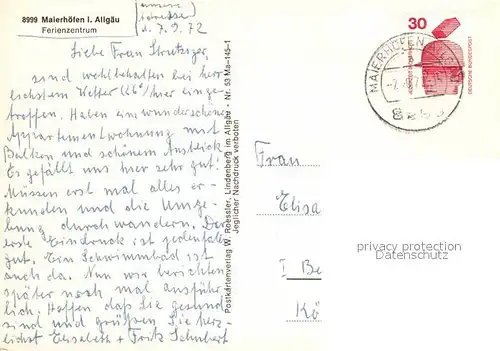 8999 Maierhöfen i. Allgäu
Ferienzentrum
(unsere
Adresse)
d. 7.9.72
Liebe Frau
sind wohlbehalten bei herr
lichstem Wetter (26°) hier einge-
troffen. Haben ein wunderschönes
Appartementwohnung mit
Balkon und schönem Ausblick.
Es gefällt uns hier sehr gut!
Müssen erst mal alles er-
kunden und die Umge-
bung durchwandern. Der
erste Eindruck ist jedenfalls
gut. Ein Schwimmbad ist
auch da. Nun wir berichten
später noch mal ausführ-
lich. Hoffen daß Sie gesund
sind und grüßen Sie herz-
lichst Elisabeth + Fritz Schubert
Postkartenverlag W. Roessler, Lindenberg im Allgäu • Nr. 53 Ma-145-1
Jeglicher Nachdruck verboten
30
DEUTSCHE BUNDESPOST
MAIERHÖFEN
8999
Frau
Elisa
1 Be
Kö
privacy protection
Datenschutz